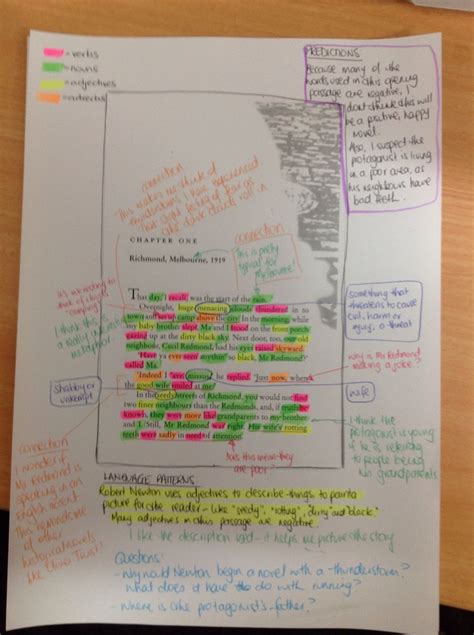 = verbs
= nouns
= adjectives
= adverbs
PREDICTIONS
Because many of the
words used in this opening
passage are negative, I
don't think this will
be a positive, happy
novel.
Also, I suspect the
protagonist is living
in a poor area, as
his neighbours have
bad teeth.
connection
This makes me think of
CHAPTER ONE
Richmond, Melbourne, 1919
connection
This is pretty
typical for
Melbourne!
This day, I recall, was the start of the rain.
Overnight, huge menacing clouds thundered in to
town and set up camp above the city. In the morning, while
my baby brother slept, Ma and I stood on the front porch
gazing up at the dirty black sky. Next door, too, our old
neighbour, Cecil Redmond, had his eyes raised skyward.
'Have ya ever seen anythin' so black, Mr Redmond?'
called Ma.
'Indeed I have, missus,' he replied. 'Just now, when
the good wife smiled at me.'
In the seedy streets of Richmond, you would not find
two finer neighbours than the Redmonds, and, if truth be
known, they were more like grandparents to my brother
and I. Still, Mr Redmond was right. His wife's rotting
teeth were sadly in need of attention!
something that
threatens to cause
evil, harm or
injury, a threat
why is Mr Redmond
making a joke?
wife
shabby or
I think the
protagonist is young
if he is referring
to people being
his grandparents
Does this mean they
are poor?
connection
I wonder if
Mr Redmond is
speaking in an
English accent.
This reminds me
of other
historical novels
like Oliver Twist!
LANGUAGE PATTERNS
Robert Newton uses adjectives to describe things to paint a
picture for the reader - like "seedy", "rotting", "dirty" and "black".
Many adjectives in this passage are negative.
I like the description used - it helps me picture the story
Questions:
- Why would Newton begin a novel with a thunderstorm?
What does it have to do with running?
- Where is the protagonist's father?